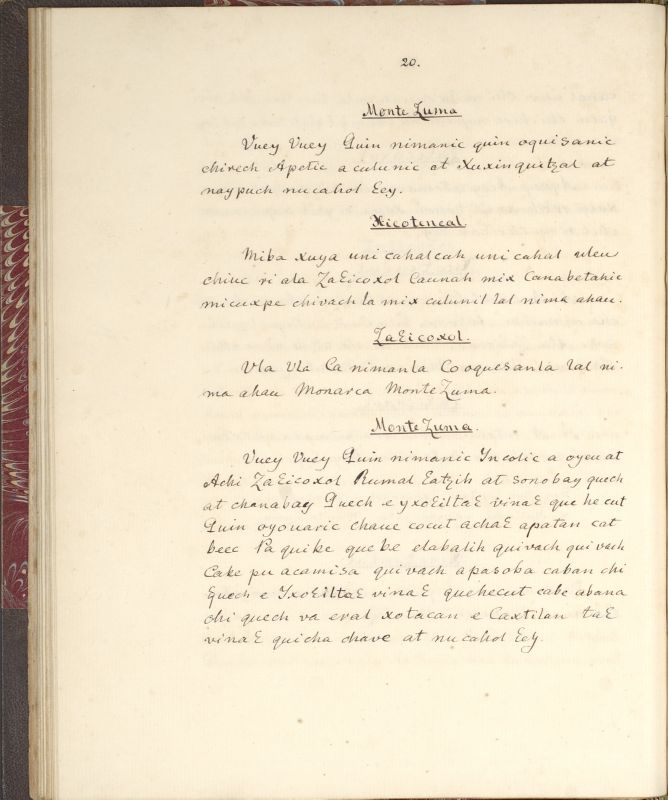 20.
Monte Zuma
Vuey Vuey Quin nimanic quin oquisanic
chirech Apetic a culunic at Xuxinquitzal at
naypuch nucahol Eey.
Xicotencal
Miba xuya uni cahalcah uni cahal uleu
chiuc ri ala ZaƐicoxol Caunah mix Canabetahic
micuxpe chivach la mix culunil lal nima ahau.
ZaƐicoxol.
Vla Vla Ca nimanla Co oquesanla lal ni-
ma ahau Monarca MonteZuma.
MonteZuma.
Vuey Vuey Quin nimanic Yncolic a oyeu at
Achi ZaƐicoxol Rumal Eatzih at sonobay quech
at chanabay Quech e yxoƐiltaƐ vinaƐ que he cut
Quin oyouaric chaue cocut achaƐ apatan cat
beec Pa quike que be elabalih quivach qui vach
Cake pu acamisa qui vach apasoba caban chi
Ɛuech e YxoƐiltaƐ vinaƐ quehecut cabe abana
chi quech va eral xotacan e Caxtilan taƐ
vinaƐ quicha chave at nu cahol Eey.